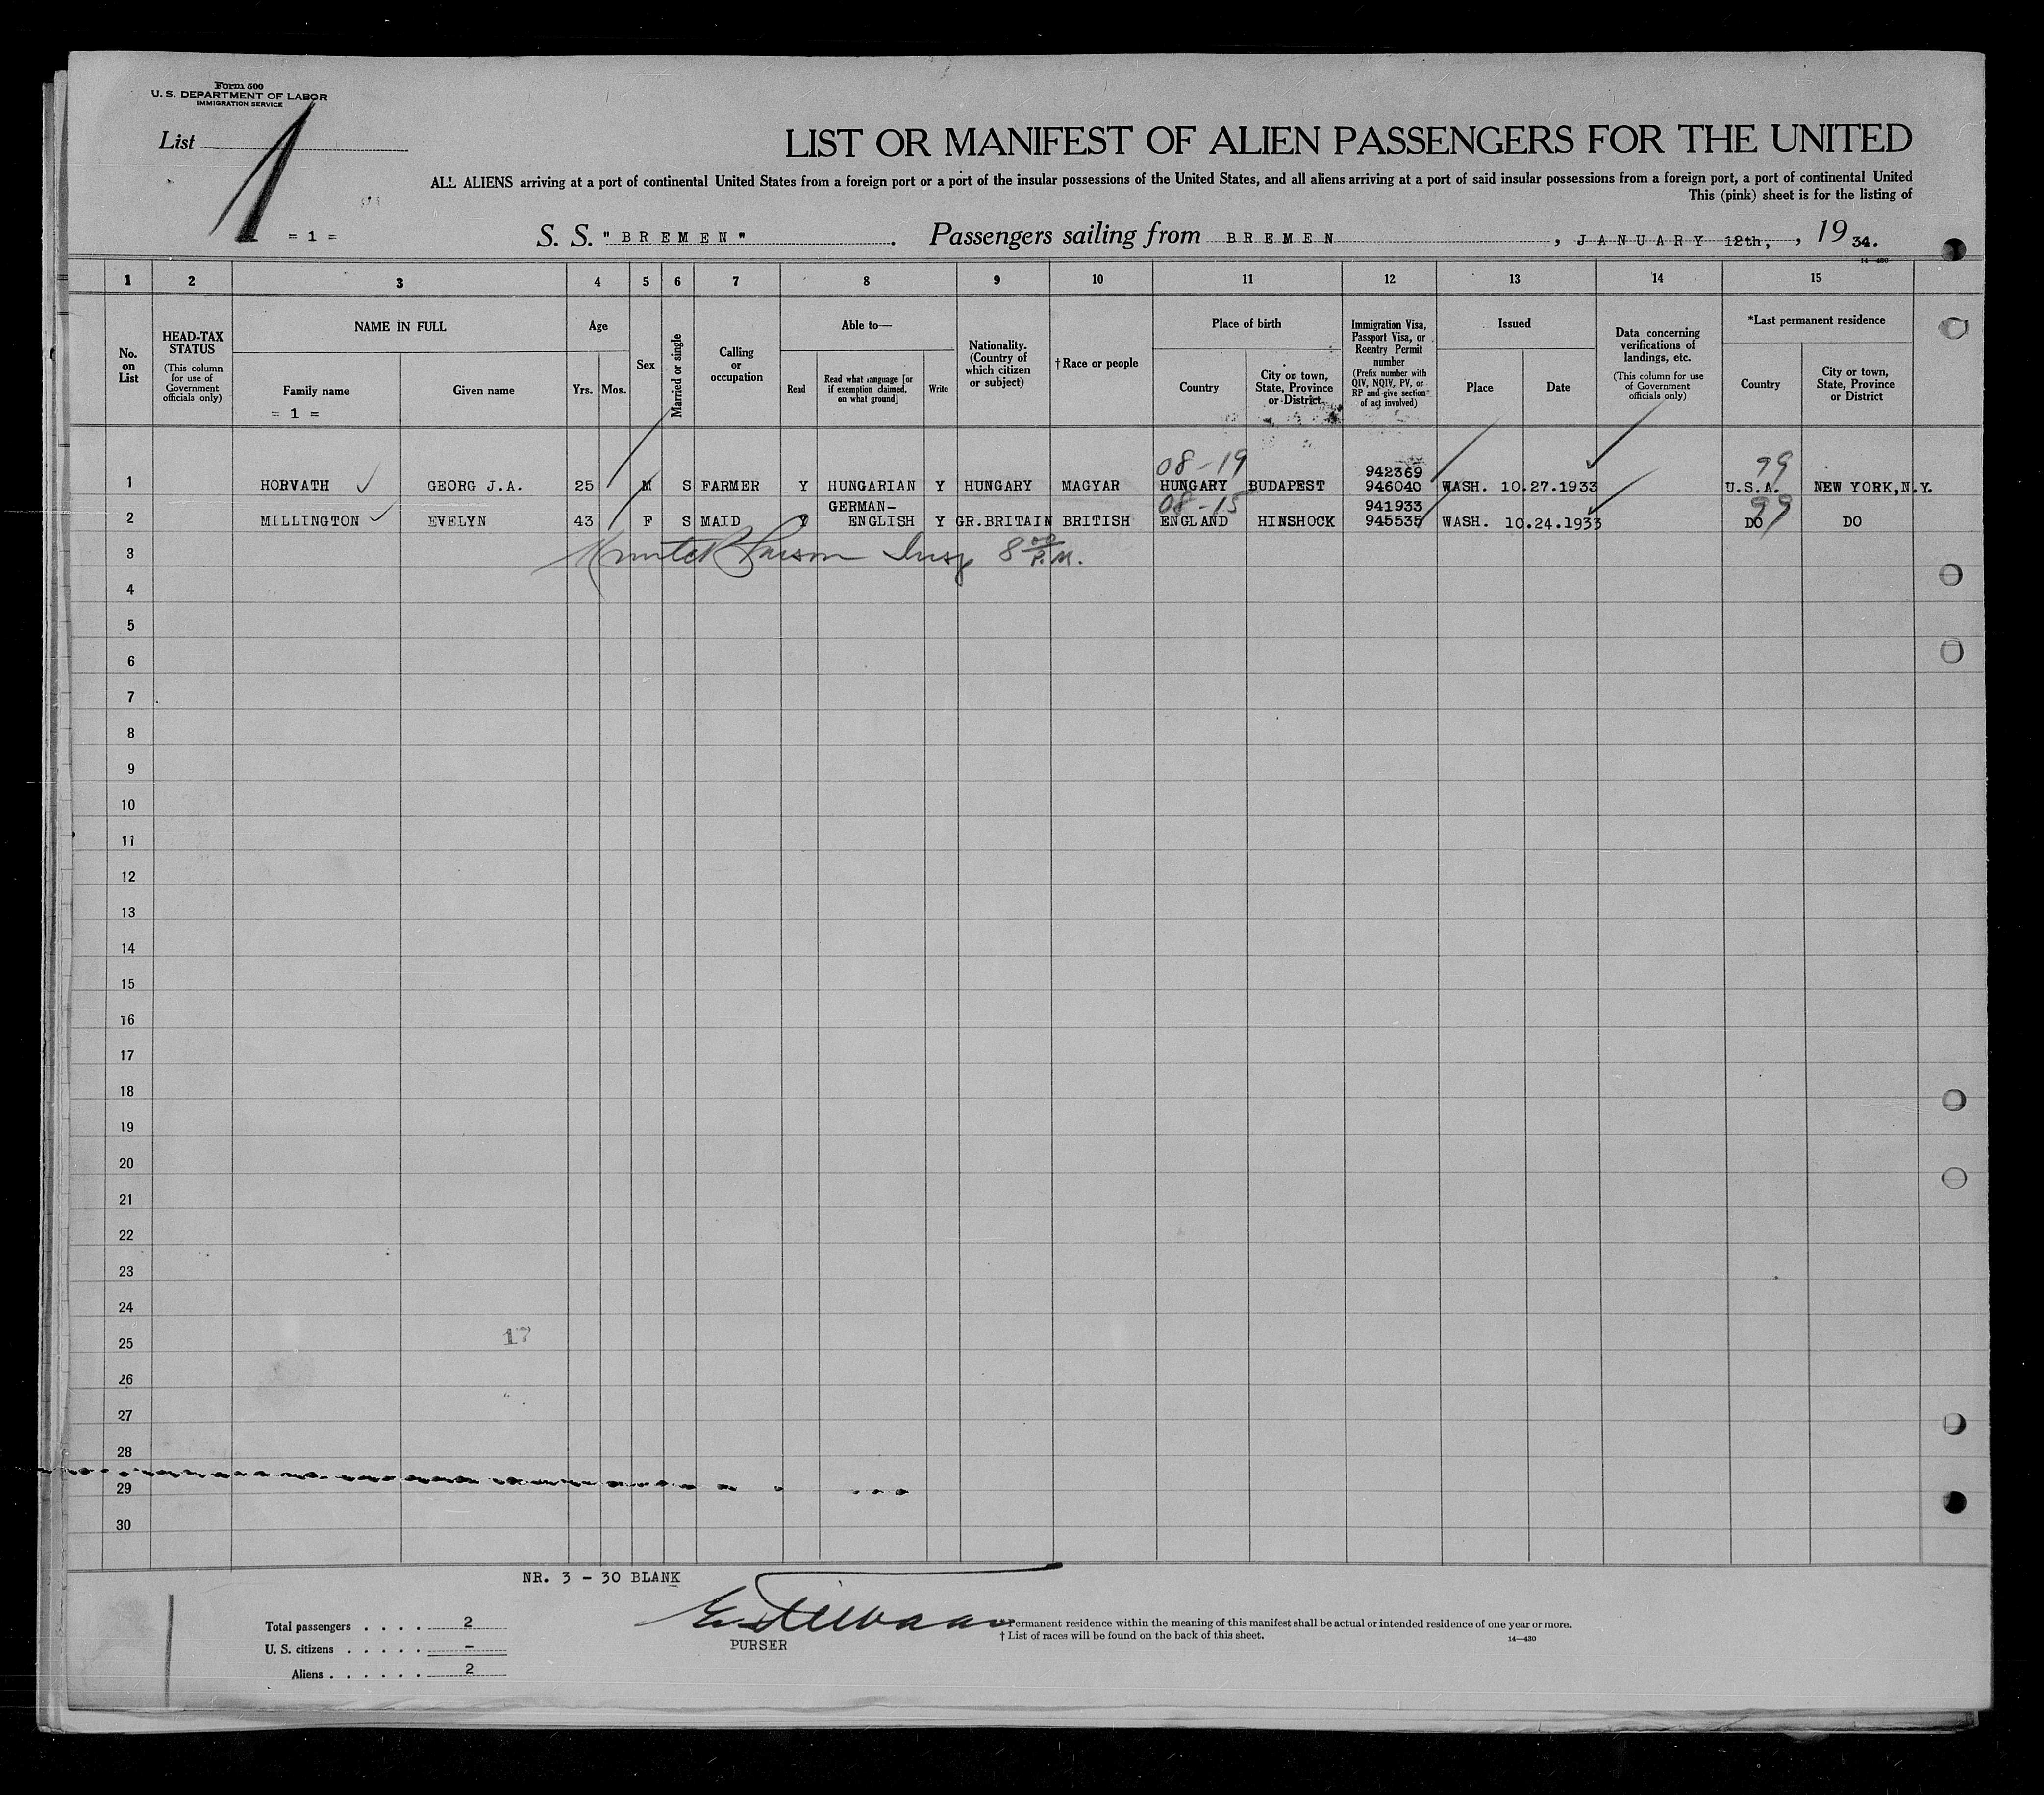 Form 500
U. S. DEPARTMENT OF LABOR
IMMIGRATION SERVICE
List 1
= 1 =
LIST OR MANIFEST OF ALIEN PASSENGERS FOR THE UNITED
ALL ALIENS arriving at a port of continental United States from a foreign port or a port of the insular possessions of the United States, and all aliens arriving at a port of said insular possessions from a foreign port, a port of continental United
This (pink) sheet is for the listing of
S. S. "BREMEN". Passengers sailing from BREMEN, JANUARY 12th,, 19 34.
14—430
1 2 3 4 5 6 7 8 9 10 11 12 13 14 15
No. on List
HEAD-TAX STATUS
(This column for use of Government officials only)
NAME IN FULL
Family name
= 1 =
Given name
Age
Yrs. Mos.
Sex
Married or single
Calling or occupation
Able to—
Read
Read what language [or if exemption claimed, on what ground]
Write
Nationality. (Country of which citizen or subject)
†Race or people
Place of birth
Country
City or town, State, Province or District
Immigration Visa, Passport Visa, or Reentry Permit number
(Prefix number with QIV, NQIV, PV, or RP and give section of act involved)
Issued
Place
Date
Data concerning verifications of landings, etc.
(This column for use of Government officials only)
*Last permanent residence
Country
City or town, State, Province or District
08-19 942369 99
1 HORVATH ✓ GEORG J.A. 25 M S FARMER Y HUNGARIAN Y HUNGARY MAGYAR HUNGARY BUDAPEST 946040 WASH. 10.27.1933 U.S.A. NEW YORK,N.Y.
GERMAN- 08-15 941933 99
2 MILLINGTON ✓ EVELYN 43 F S MAID Y ENGLISH Y GR.BRITAIN BRITISH ENGLAND HINSHOCK 945535 WASH. 10.24.1933 DO DO
3 Insp 8 00 P.M.
4
5
6
7
8
9
10
11
12
13
14
15
16
17
18
19
20
21
22
23
24
17
25
26
27
28
29
30
NR. 3 - 30 BLANK
Total passengers . . . . 2
U. S. citizens . . . . . –
Aliens . . . . . . 2
PURSER
Permanent residence within the meaning of this manifest shall be actual or intended residence of one year or more.
† List of races will be found on the back of this sheet.
14—430